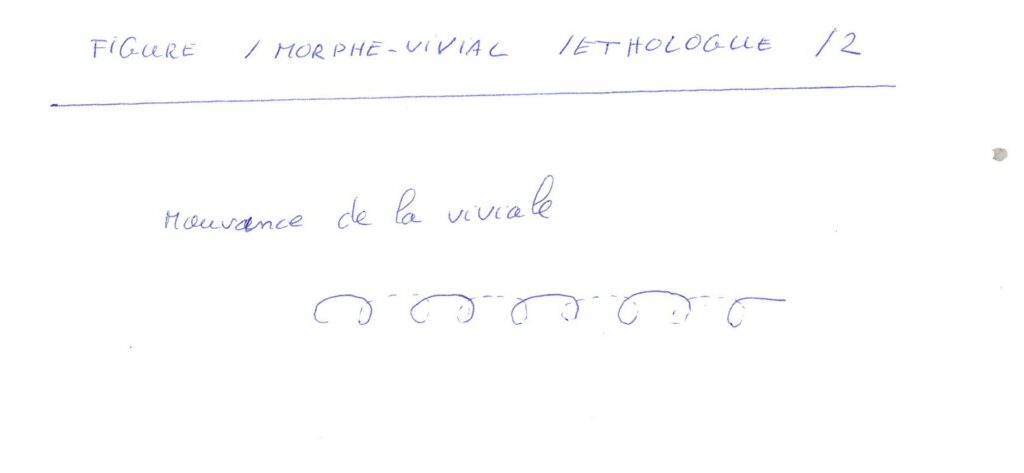 FIGURE / MORPHE-VIVIAL / ETHOLOGUE / 2
Mouvance de la viviale